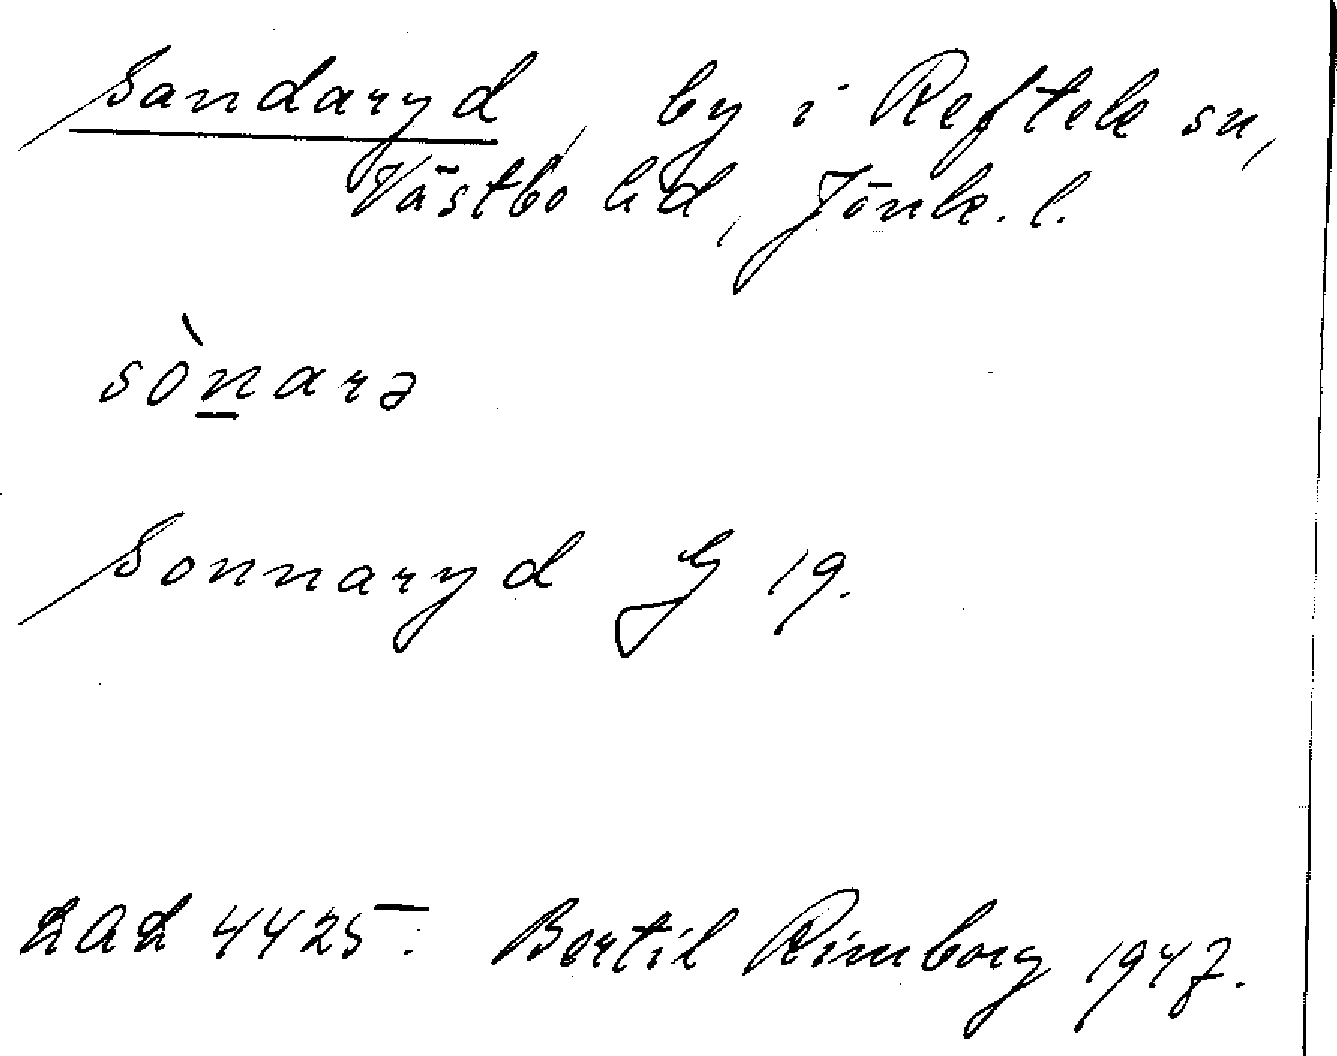 Sandaryd, by i Reftele sn,
Västbo hd, Jönk. l.
sònarə
Sonnaryd G 19.
LAL 4425. Bertil Rimborg 1947.